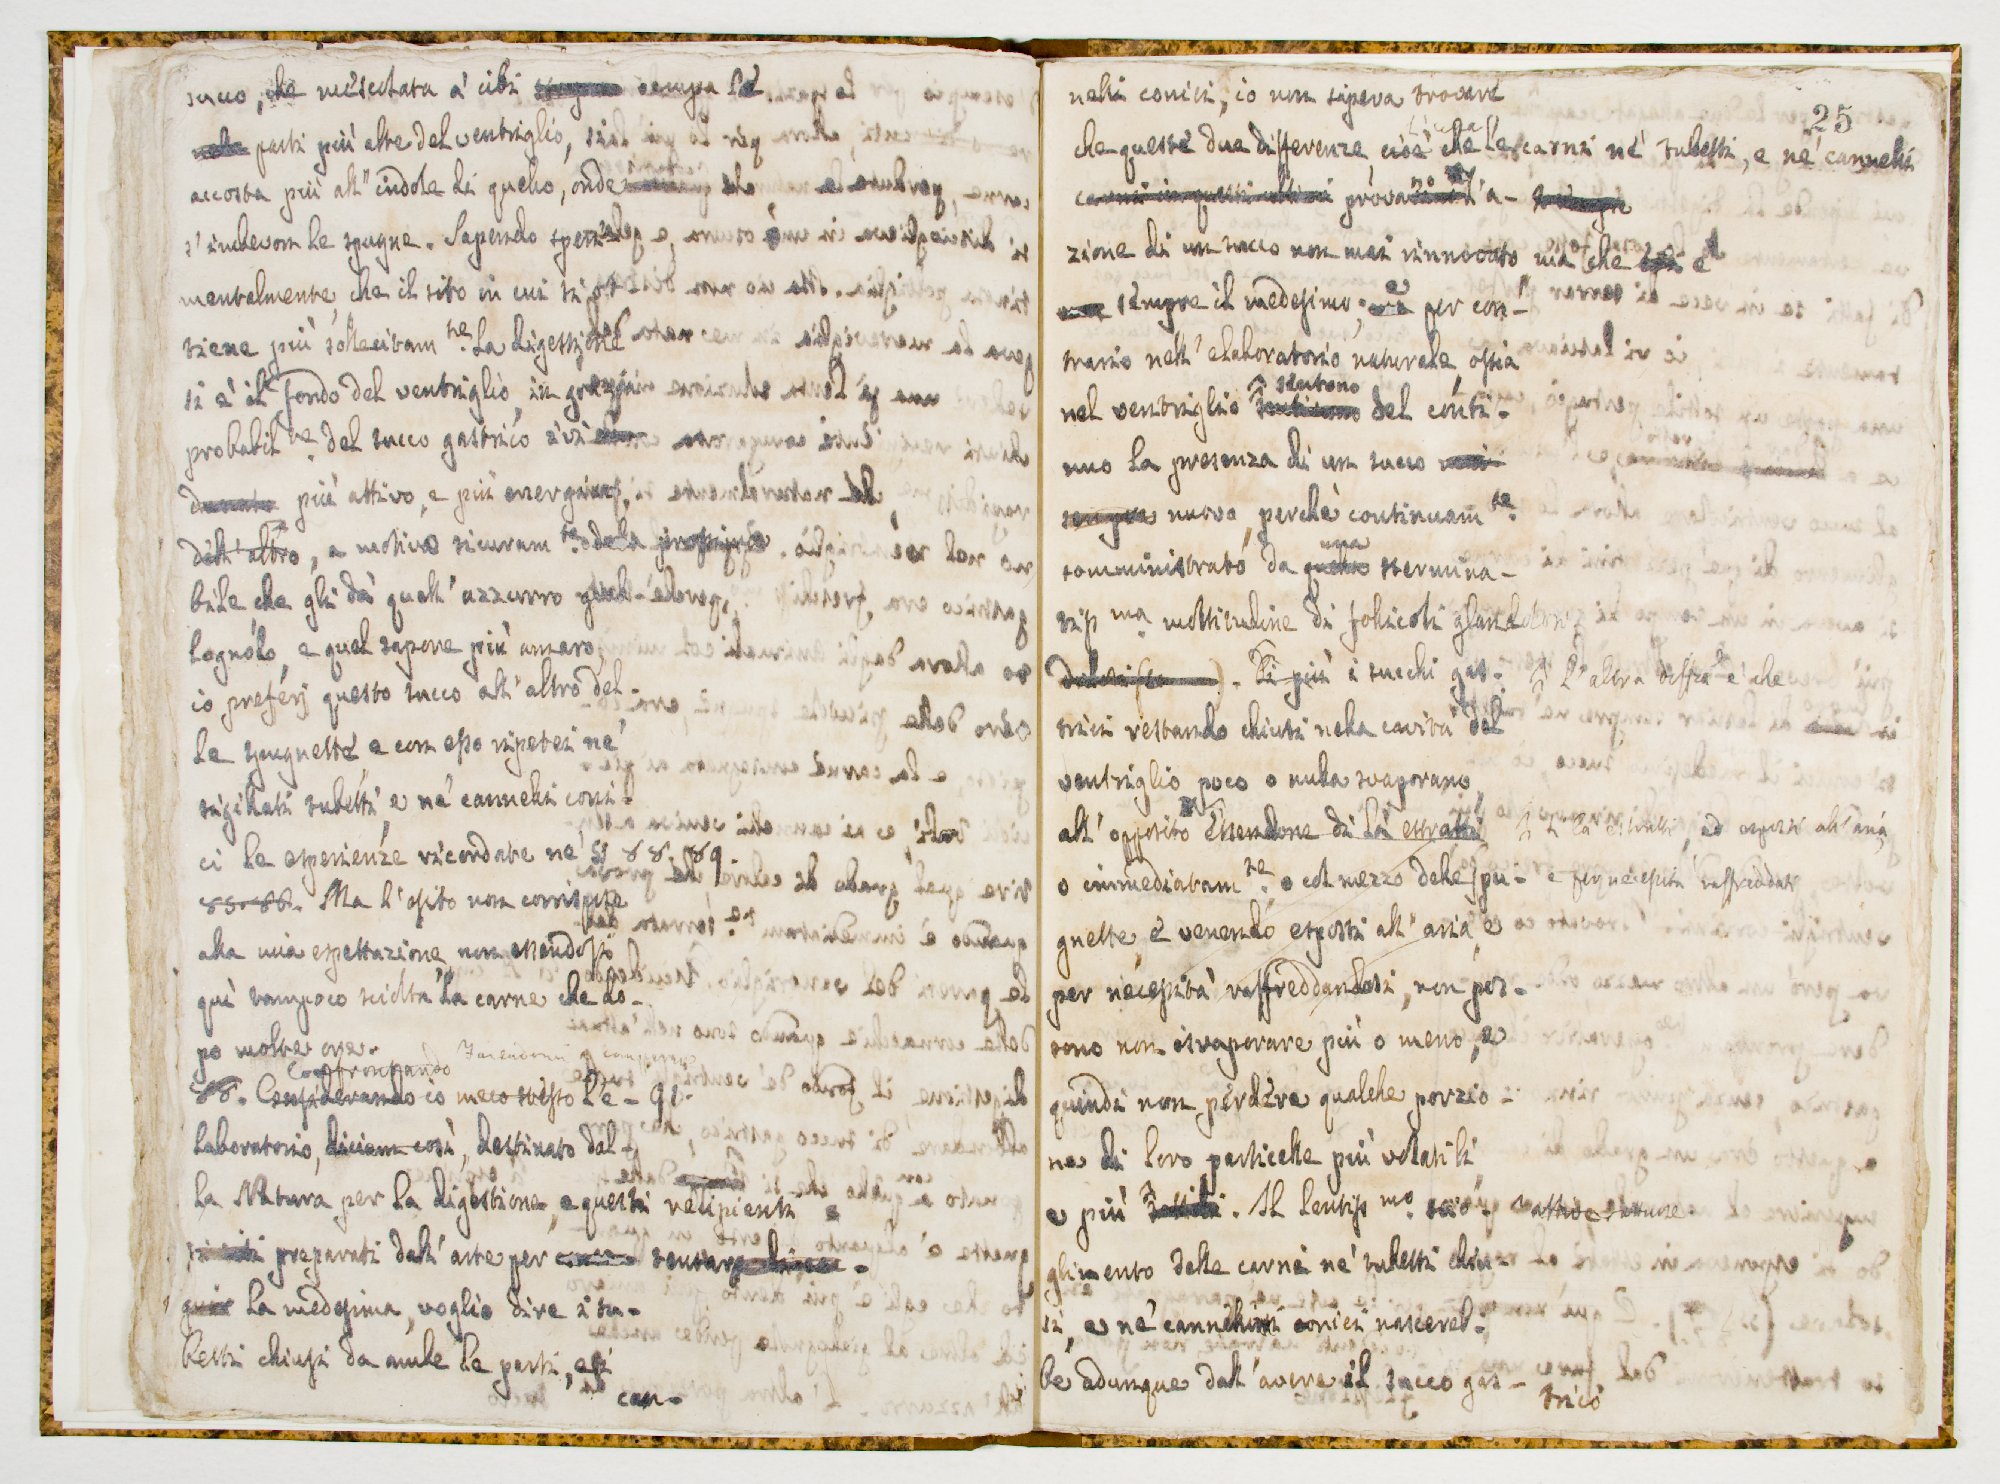 succo, che mescolata a' cibi sempra le
nelle parti più alte del ventriglio, si
accosta più all'indole di quello, onde
s'imbevon le spugne. Sapendo speri-
mentalmente, che il sito in cui si ot-
tiene più sollecitam.te la digestione
si è il fondo del ventriglio, in grazia
probabil.te del succo gastrico ivi
più attivo, e più energico
dell'altro, a motivo sicuram.te della
bile, che gli dà quell'azzurro gial-
lognolo, e quel sapore più amaro,
io preferj questo succo all'altro del-
le spugnette e con esso ripetei ne'
sigillati tubetti, e ne' cannelli coni-
ci le esperienze ricordate ne' §§ 88. 89.
85. 86. Ma l'esito non corrispose
alla mia espettazione non essendosi
quì tampoco sciolta la carne che do-
po molte ore.
Confrontando
88. Considerando io meco stesso l'e- 91.
laboratorio, diciam così, destinato dal-
la Natura per la digestione, e questi recipienti
preparati dall'arte per tentare
la medesima, voglio dire i tu-
betti chiusi da ambe le parti, ed i
can-
25
nelli conici, io non sapeva trovare
che queste due differenze cioè che le carni ne' tubetti, e ne' cannelli
carni in questi ultimi provano l'a-
zione di un succo non mai rinnovato, ma che è
sempre il medesimo; e per con-
trario nell'elaboratorio naturale ossia
sentono
nel ventriglio del conti-
nuo la presenza di un succo
sempre nuovo, perchè continuam.te
una
somministrato da quella stermina-
tiss.ma moltitudine di follicoli glandolosi
Di più i succhi gas- L'altra differ.a è che
trici restando chiusi nella cavità del
ventriglio poco o nulla svaporano,
all'opposito essendone di là estratti di là estratti, ed esposti all'aria,
o immediatam.te o col mezzo delle spu- e per necessità raffreddati
gnette, e venendo esposti all'aria, e
per necessità raffreddandosi, non pos-
sono non isvaporare più o meno, e
quindi non perdere qualche porzio-
ne di loro particelle più volatili
e più attive. Il lentiss.mo scio-
glimento delle carni ne' tubetti chiu-
si, e ne' cannellini conici nascereb-
be adunque dall'avere il succo gas-
trico